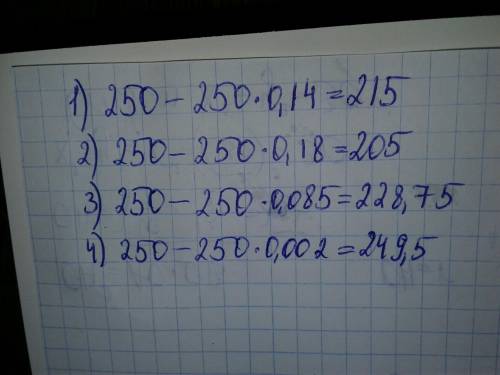 1) 250 - 250 · 0,14 = 215
2) 250 - 250 · 0,18 = 205
3) 250 - 250 · 0,085 = 228,75
4) 250 - 250 · 0,002 = 249,5